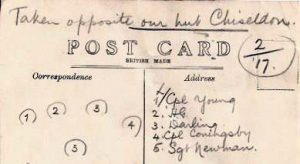 Taken opposite our hut Chiseldon.
POST CARD
BRITISH MADE
2/'17.
Correspondence
Address
1 2 3 4 5
1/ Cpl Young
2. HG.
3. Darling
4. Cpl Coningsby
5. Sgt Newman.